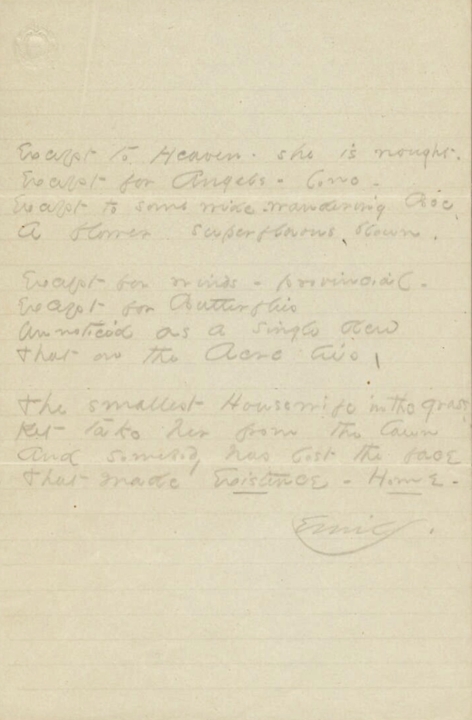 Except to Heaven - she is nought.
Except for Angels - lone -
Except to some wide-wandering Bee
A flower superfluous blown.
Except for winds - provincial -
Except for Butterflies
Unnoticed as a single dew
That on the Acre lies,
The smallest Housewife in the grass,
Yet take her from the Lawn
And somebody has lost the face
That made Existence - Home -
Emily.